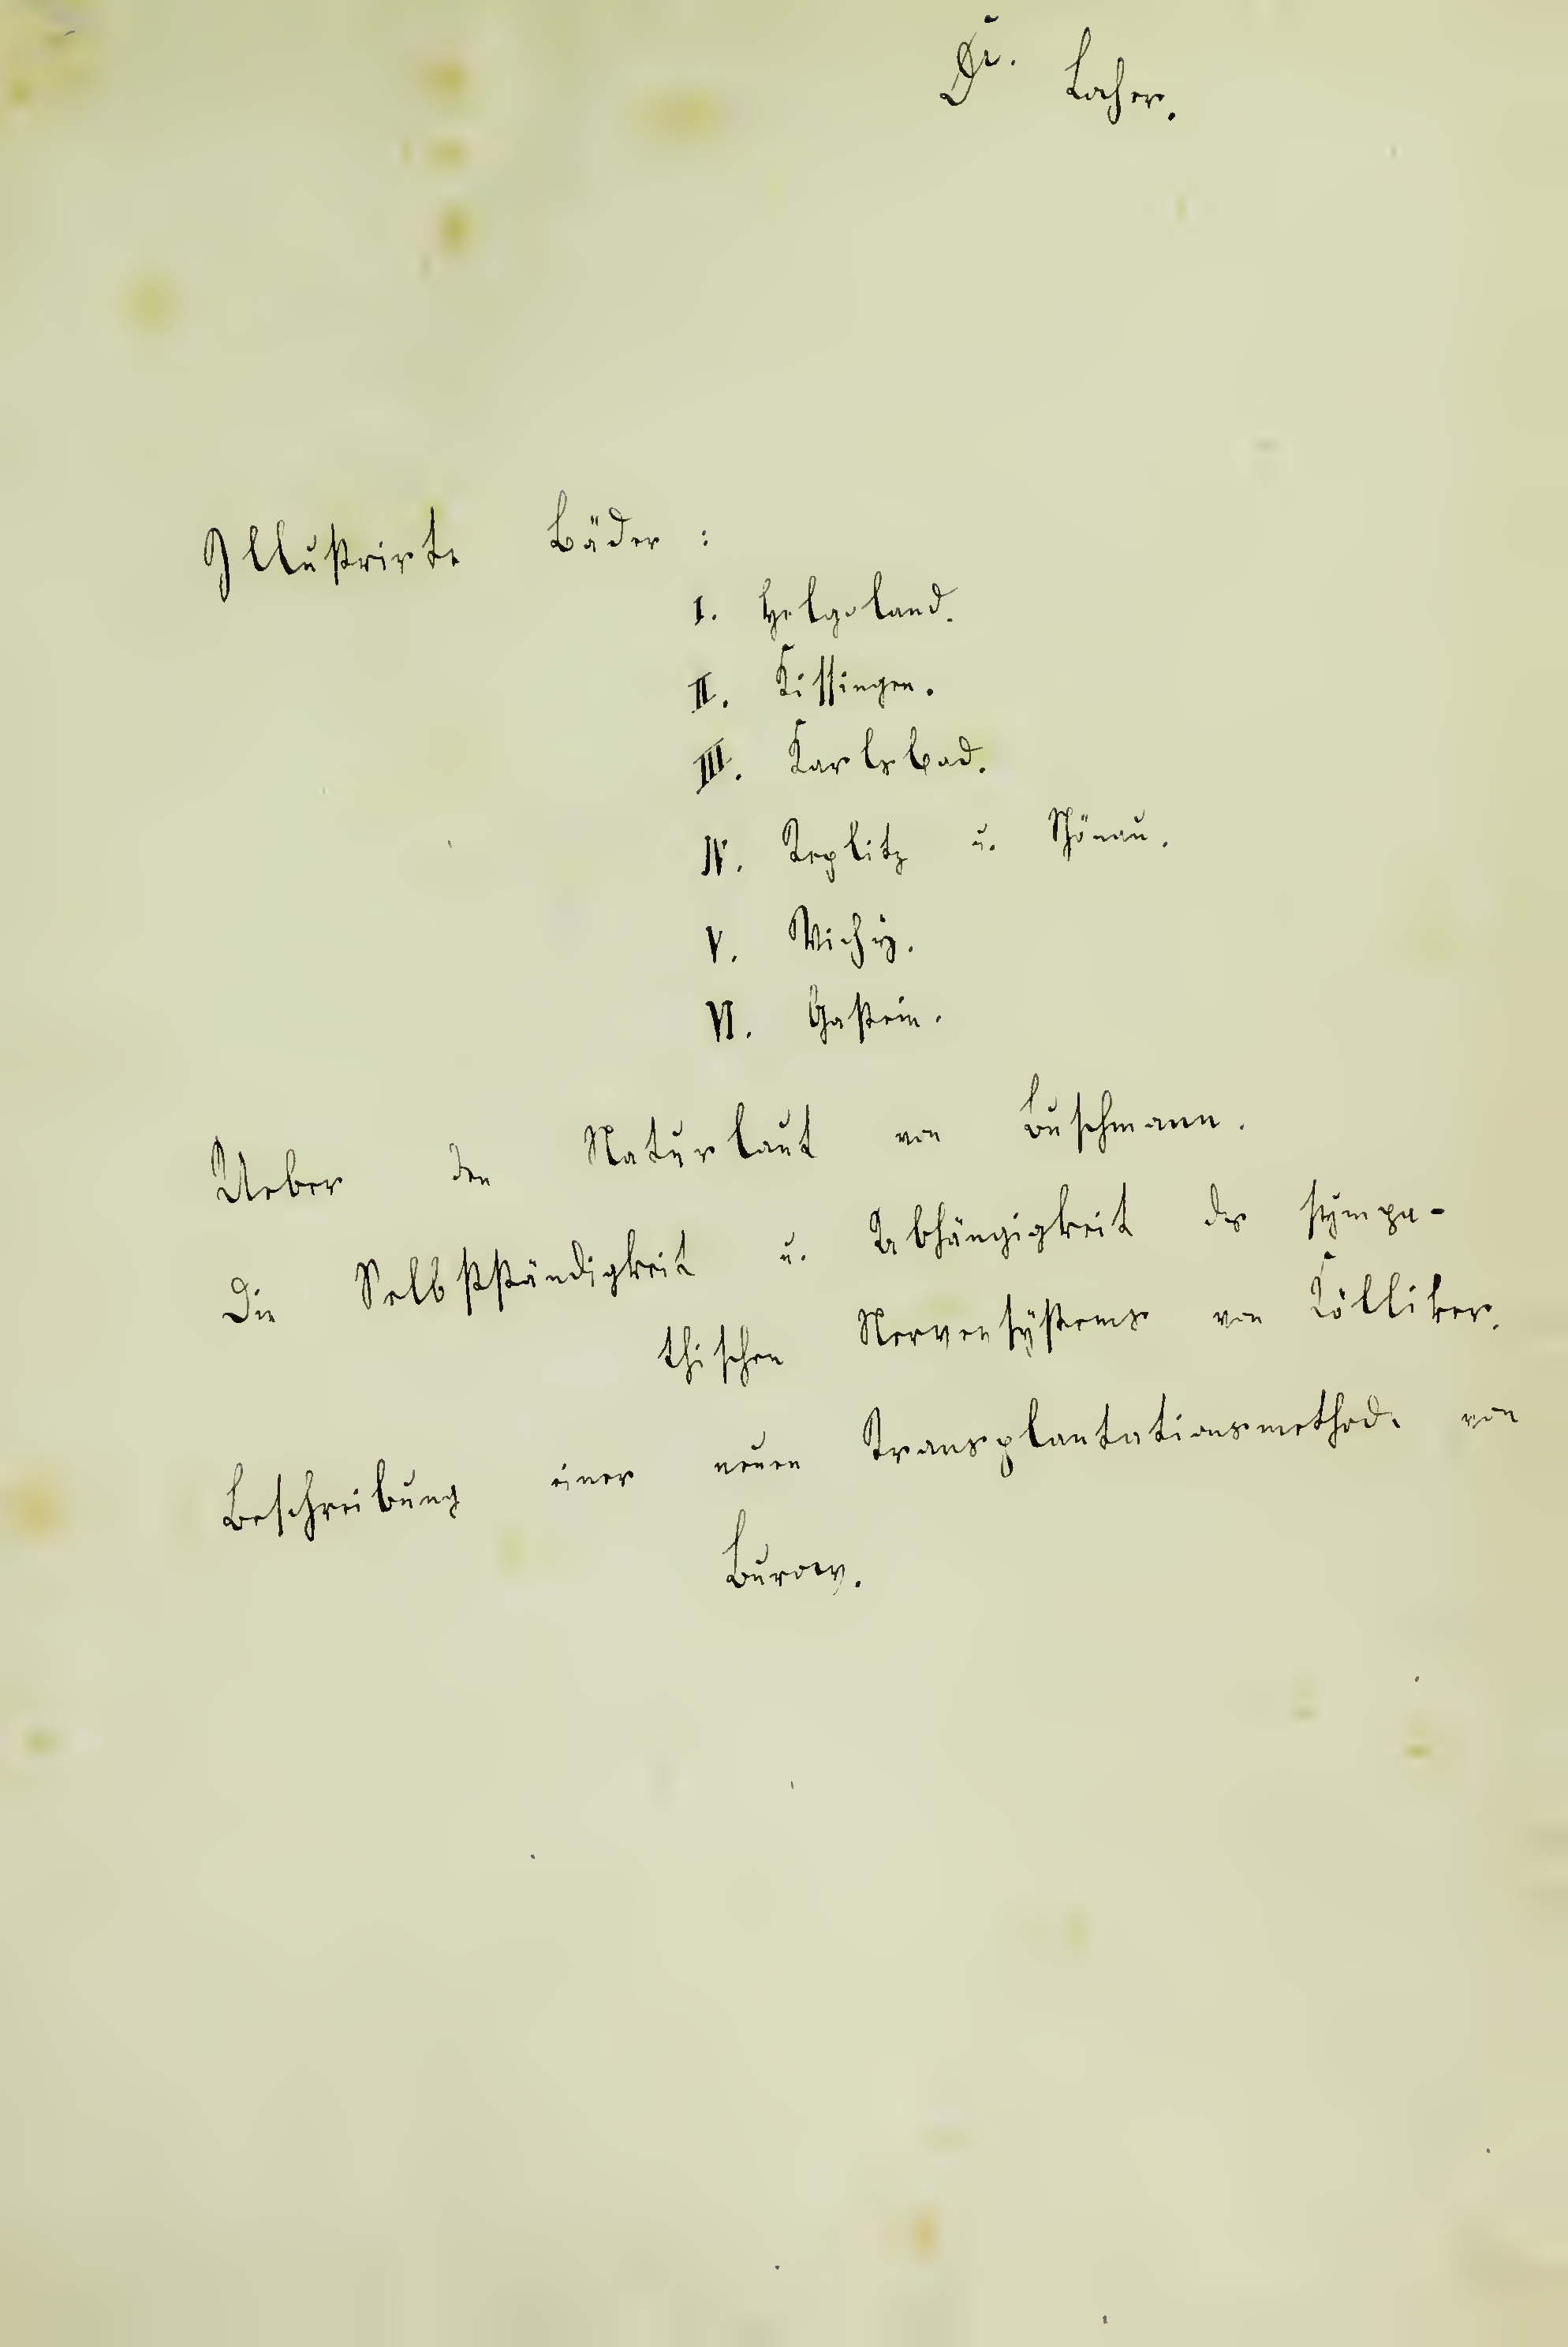 Dr. Locher.
Illustrirte Bäder :
I. Helgoland.
II. Kissingen.
III. Karlsbad.
IV. Teplitz u. Schönau.
V. Vichÿ.
VI. Gastein.
Ueber den Naturlaut von Buschmann.
Die Selbstständigkeit u. Abhängigkeit des sympa-
thischen Nervensÿstems von Kölliker.
Beschreibung einer neuen Transplantationsmethode von
Burow.